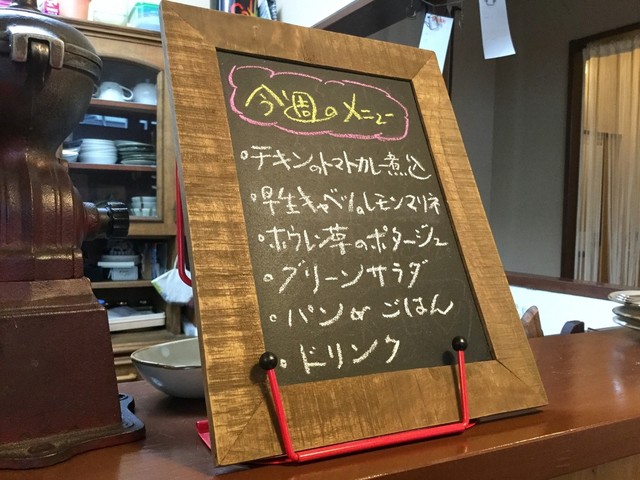 今週のメニュー
・チキンのトマトカレー煮込
・早生キャベツのレモンマリネ
・ホウレン草のポタージュ
・グリーンサラダ
・パン or ごはん
・ドリンク